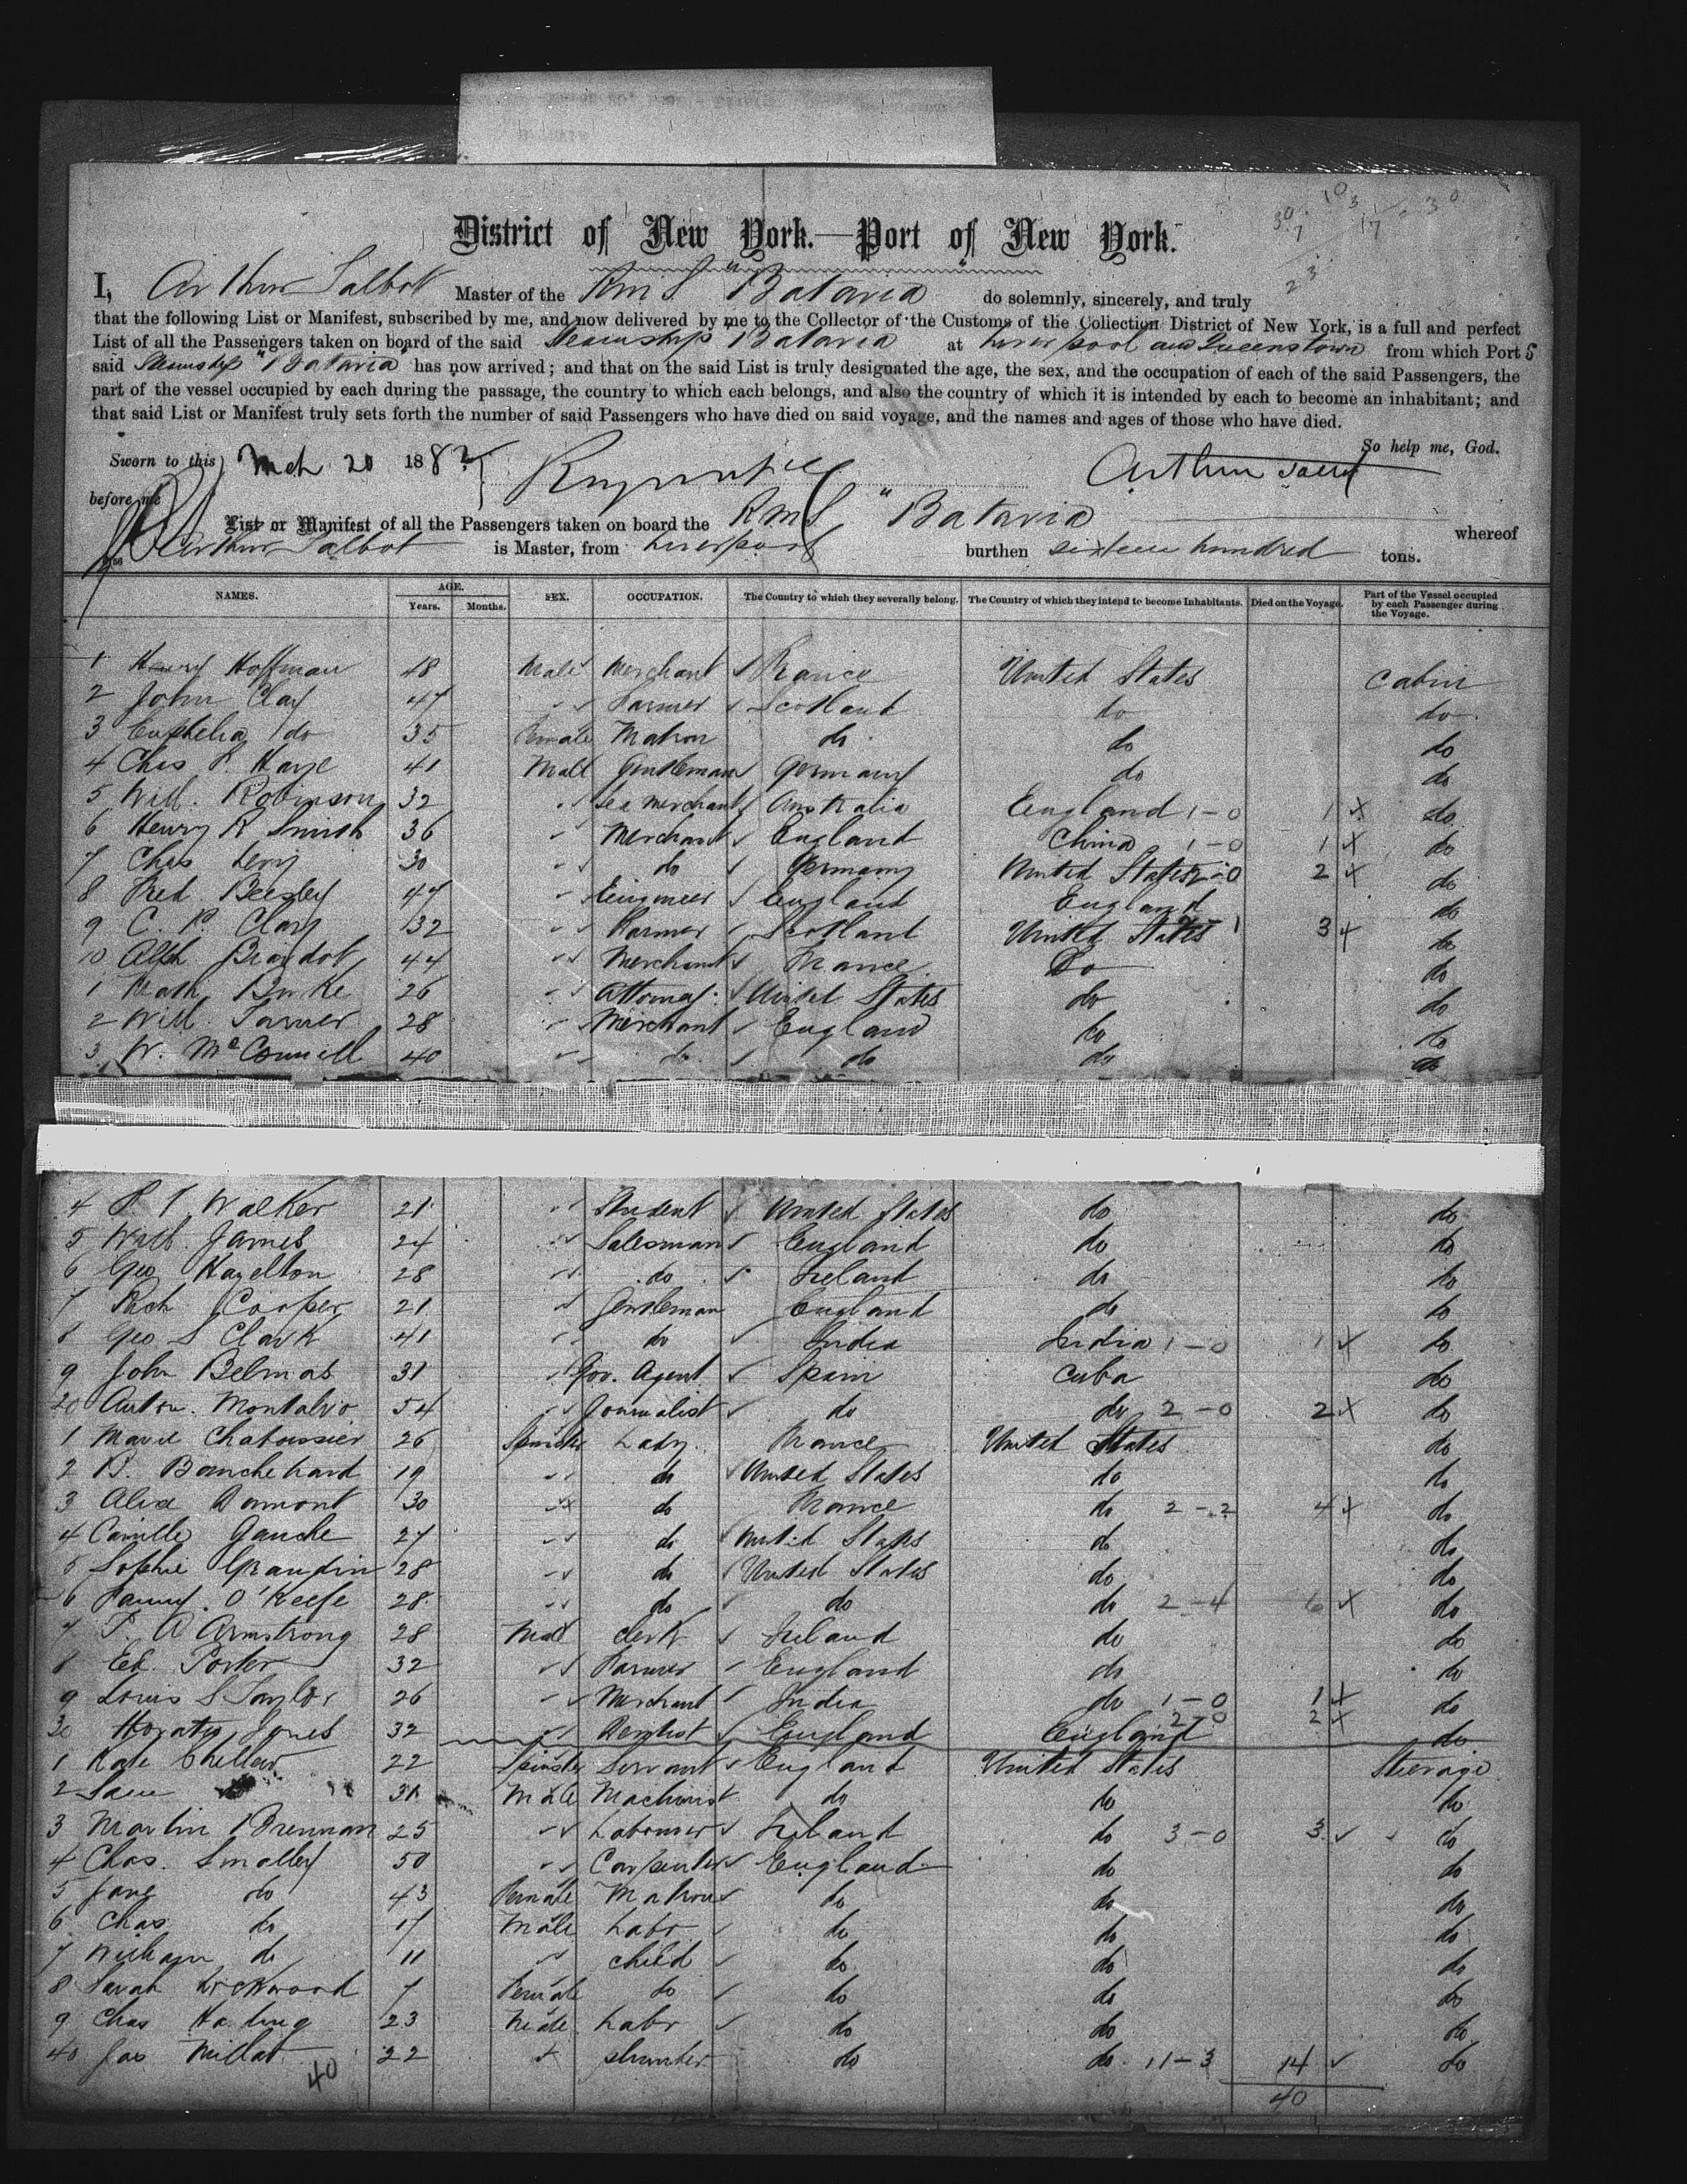 District of New York.—Port of New York.
I, Arthur Talbot Master of the RMS "Batavia" do solemnly, sincerely, and truly
that the following List or Manifest, subscribed by me, and now delivered by me to the Collector of the Customs of the Collection District of New York, is a full and perfect
List of all the Passengers taken on board of the said Steamship "Batavia at Liverpool and Queenstown from which Port s
said Steamship "Batavia" has now arrived; and that on the said List is truly designated the age, the sex, and the occupation of each of the said Passengers, the
part of the vessel occupied by each during the passage, the country to which each belongs, and also the country of which it is intended by each to become an inhabitant; and
that said List or Manifest truly sets forth the number of said Passengers who have died on said voyage, and the names and ages of those who have died.
So help me, God.
Sworn to this Mch 20 188
before me
Arthur Talbot
List or Manifest of all the Passengers taken on board the RMS "Batavia whereof
Arthur Talbot is Master, from Liverpool burthen sixteen hundred tons.
NAMES. AGE. Years. Months. SEX. OCCUPATION. The Country to which they severally belong. The Country of which they intend to become Inhabitants. Died on the Voyage. Part of the Vessel occupied by each Passenger during the Voyage.
1 Henry Hoffman 48 Male Merchant France United States Cabin
2 John Clay 47 " Farmer Scotland do do
3 Euphelia do 35 Female Matron do do do
4 Chas Kaye 41 Male Gentleman Germany do do
5 Will. Robinson 32 " merchant Australia England 1-0 1 x do
6 Henry R Smith 36 " Merchant England China 1-0 1 x do
7 Chas Levy 30 " do Germany United States 2-0 2 x do
8 Fred Beesley 47 " Engineer England England do
9 C. P. Clay 32 " Farmer Scotland United States 1 3 x do
10 Alph 44 " Merchant France Do do
1 Math Burke 26 " Attorney United States do do
2 Will Farmer 28 " Merchant England do do
3 W. McConnell 40 " do do do do
4 P. T. Walker 21 " Student United States do do
5 Will. James 24 " Salesman England do do
6 Geo Hazelton 28 " do Ireland do do
7 Rich Cooper 21 " Gentleman England do do
8 Geo S Clark 41 " do India India 1-0 1 x do
9 John Belmas 31 " Gov. Agent Spain Cuba do
20 Anton. Montalvo 54 " Journalist do do 2-0 2 x do
1 Marie Chaboussier 26 Spinster Lady France United States do
2 B. 19 " do United States do do
3 Alice Damont 30 " do France do 2-2 4 x do
4 Camille Gauche 27 " do United States do do
5 Sophie Grandin 28 " do United States do do
6 Fanny O'Keefe 28 " do do do 2-4 6 x do
7 T. A Armstrong 28 Male Clerk Ireland do do
8 Ed. Porter 32 " Farmer England do do
9 Louis S Taylor 26 " Merchant India do 1-0 1 x do
30 Horatio Jones 32 " Dentist England England 2-0 2 x do
1 Kate 22 Spinster Servant England United States Steerage
2 Sam 31 Male Machinist do do do
3 Martin Brennan 25 " Labourer Ireland do 3-0 3 do
4 Chas. Smalley 50 " Carpenter England do do
5 Jane do 43 Female Matron do do do
6 Chas do 17 Male Labr do do do
7 William do 11 " child do do do
8 Sarah Lockwood 7 Female do do do do
9 Chas 23 Male Labr do do do
40 Jas Millat 22 " plumber do do 11-3 14 do
40
40